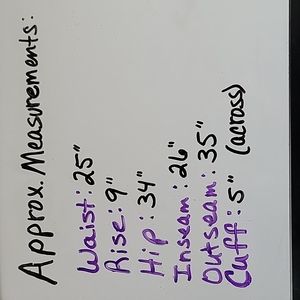 Approx. Measurements:
Waist: 25"
Rise: 9"
Hip: 34"
Inseam: 26"
Outseam: 35"
Cuff: 5" (across)